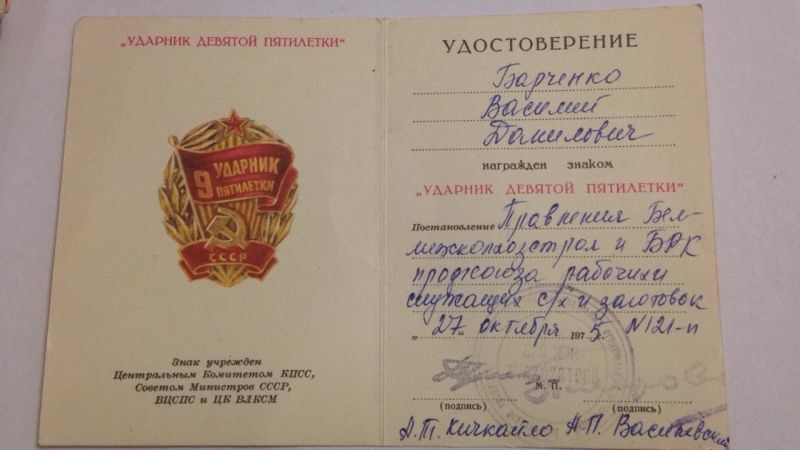 „УДАРНИК ДЕВЯТОЙ ПЯТИЛЕТКИ“
9 УДАРНИК
ПЯТИЛЕТКИ
СССР
Знак учрежден
Центральным Комитетом КПСС,
Советом Министров СССР,
ВЦСПС и ЦК ВЛКСМ
УДОСТОВЕРЕНИЕ
Барченко
Василий
Данилович
награжден знаком
„УДАРНИК ДЕВЯТОЙ ПЯТИЛЕТКИ“
Постановление Правления Бел-
межколхозстроя и БРК
профсоюза рабочих и
служащих с/х и заготовок
„27" октября 1975 г. N 121-п
М. П.
(подпись) (подпись)
А.Т. Кичкайло А.П. Василевский